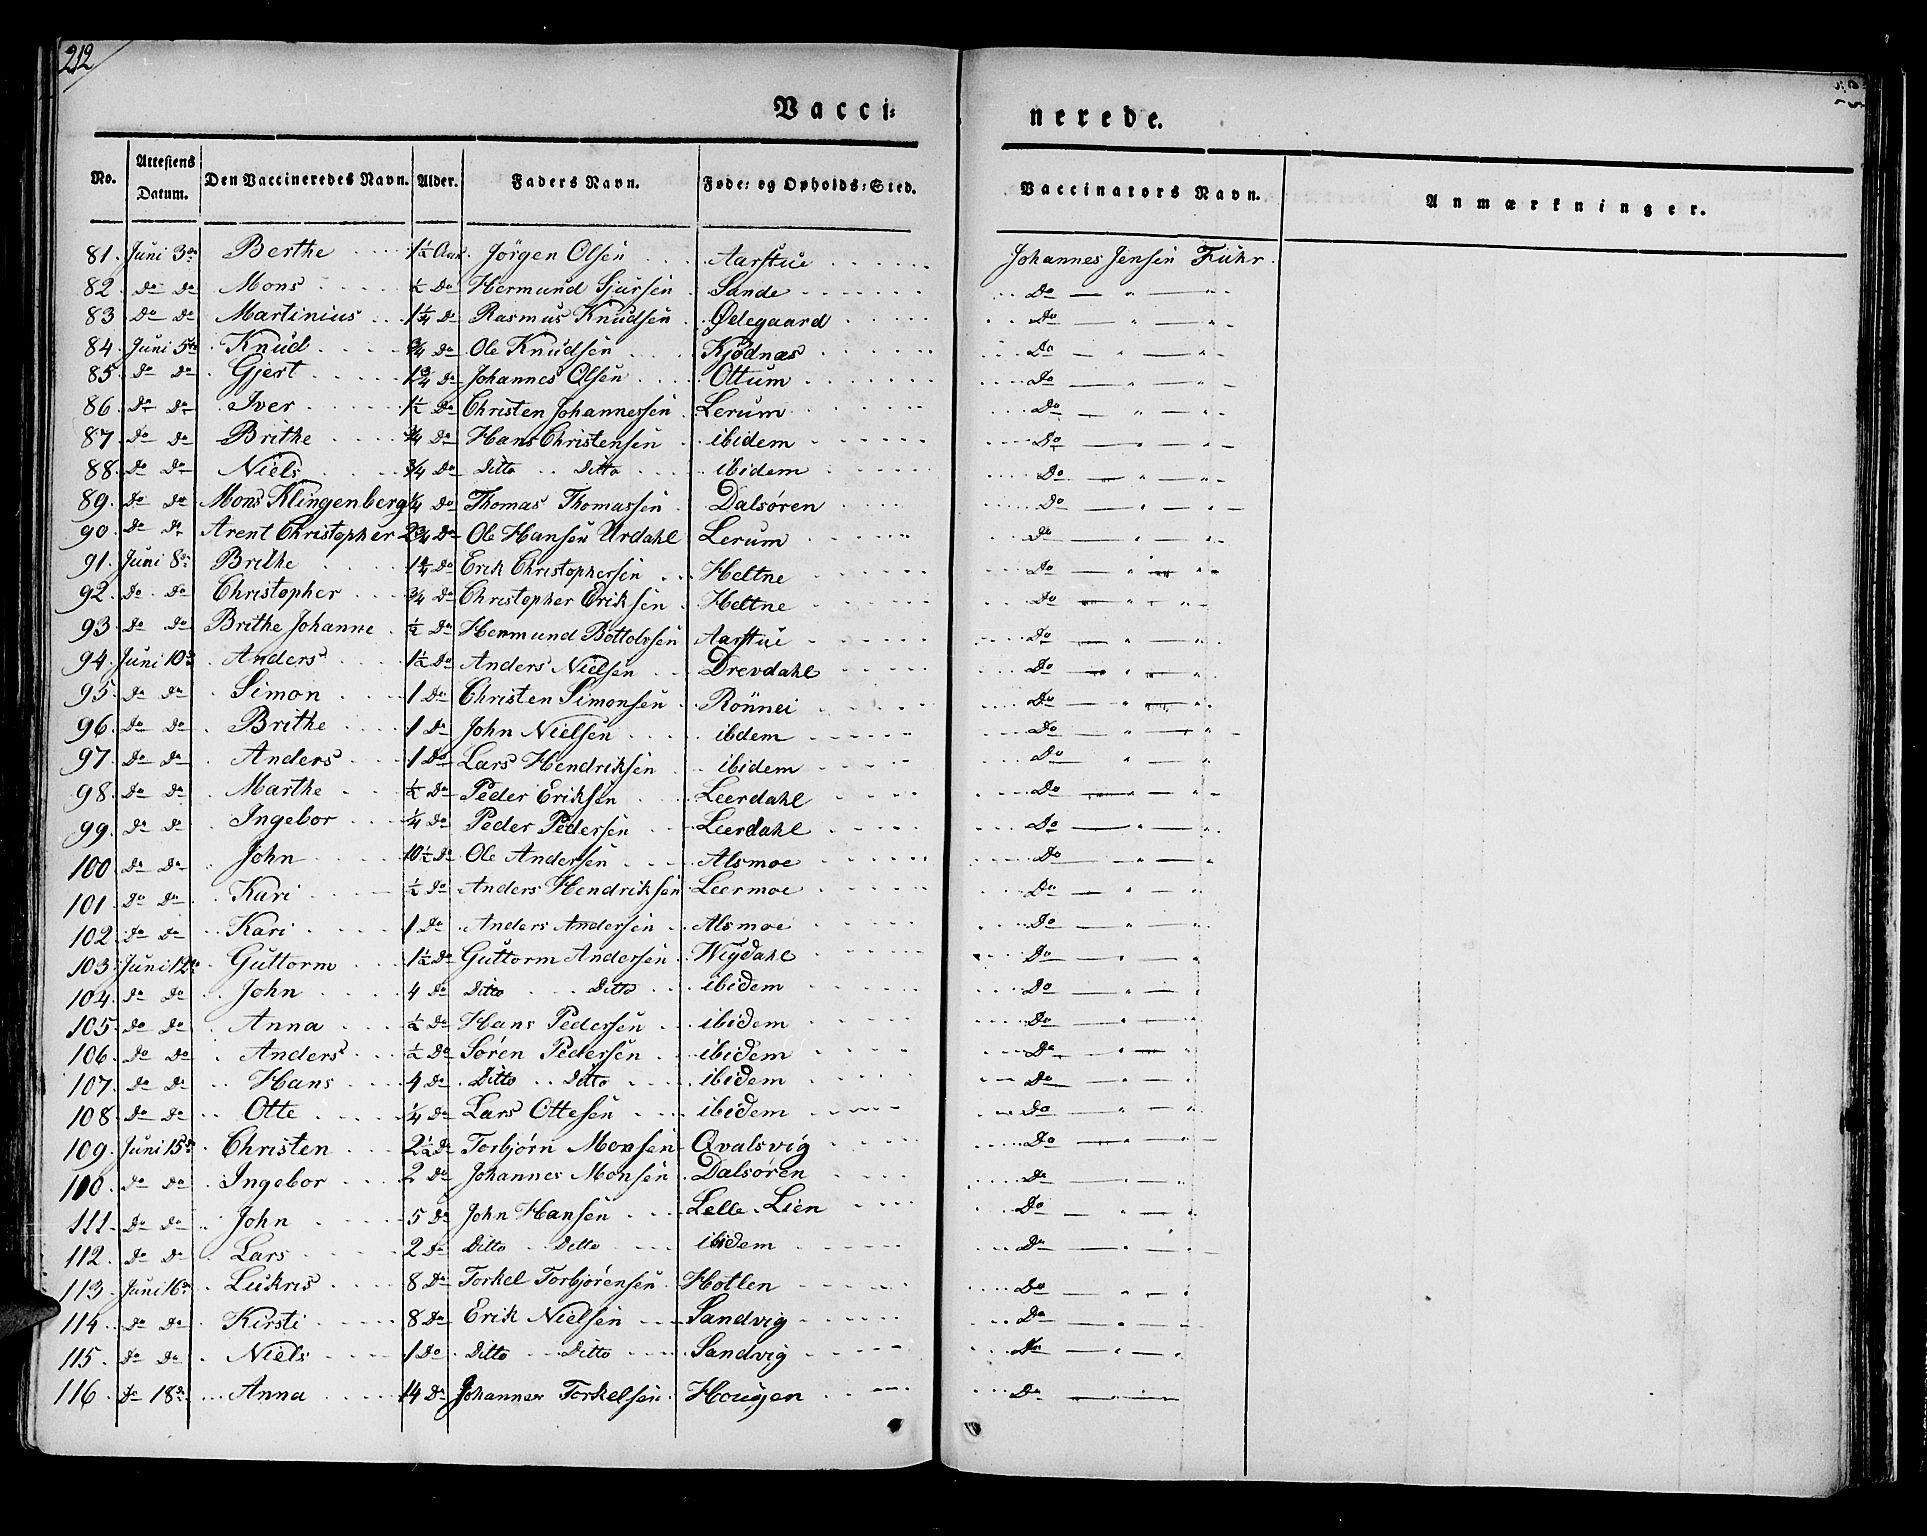 212
Vacci= nerede.
No. Attestens Datum. Den Vaccineredes Navn. Alder. Faders Navn. Føde= og Opholds=Sted. Vaccinators Navn. Anmærkninger.
81. Juni 3die Berthe 1½ Aar. Jörgen Olsen Aarstue Johannes Jensen Fuhr.
82 Do Do Mons ½ Do Hermund Sjursen Sande Do
83 Do Do Martinius 1¼ Do Rasmus Knudsen Ødegaard Do
84. Juni 5te Knud ¾ Do Ole Knudsen Kjödnæs Do
85. Do Do Gjert 1¾ Do Johannes Olsen Ottum Do
86 Do Do Iver 1½ Do Christen Johannessen Lerum Do
87. Do Do Brithe ¾ Do Hans Christensen ibidem Do
88. Do Do Niels ¾ Do Ditto Ditto ibidem Do
89. Do Do Mons Klingenberg ¼ Do Thomas Thomassen Dalsören Do
90. Do Do Arent Christopher 2¾ Do Ole Hansen Urdahl Lerum Do
91. Juni 8de Brithe 1¼ Do Erik Christophersen Heltne Do
92. Do Do Christopher ¾ Do Christopher Eriksen Heltne Do
93. Do Do Brithe Johanne ½ Do Hermund Bottolvsen Aarstue Do
94. Juni 10de Anders 1½ Do Anders Nielsen Drevdahl Do
95. Do Do Simon 1 Do Christen Simonsen Rönnei Do
96. Do Do Brithe 1 Do John Nielsen ibdem Do
97. Do Do Anders 1 Do Lars Hendriksen ibidem Do
98. Do Do Marthe ½ Do Peder Eriksen Leerdahl Do
99. Do Do Ingebor ¼ Do Peder Pedersen Leerdahl Do
100 Do Do John 10½ Do Ole Andersen Alsmoe Do
101. Do Do Kari ½ Do Anders Hendriksen Leermoe Do
102. Do Do Kari 1 Do Anders Andersen Alsmoe Do
103. Juni 12te Guttorm 1½ Do Guttorm Andersen Wigdahl Do
104. Do Do John 4 Do Ditto Ditto ibidem Do
105. Do Do Anna ½ Do Hans Pedersen ibidem Do
106. Do Do Anders ½ Do Sören Pedersen ibidem Do
107. Do Do Hans 4 Do Ditto Ditto ibidem Do
108 Do Do Otte ¼ Do Lars Ottesen ibidem Do
109. Juni 15de Christen 2½ Do Torbjörn Monsen Qvalsvig Do
110 Do Do Ingebor 2 Do Johannes Monsen Dalsören Do
111. Do Do John 5 Do John Hansen Lelle-Lien Do
112. Do Do Lars 2 Do Ditto Ditto ibidem Do
113 Juni 16de Lukris 8 Do Torkel Torbjörensen Hotlen Do
114 Do Do Kirsti 8 Do Erik Nielsen Sandvig Do
115. Do Do Niels 1 Do Ditto Ditto Sandvig Do
116 Do 18de Anna 14 Do Johannes Torkelsen Hougen Do